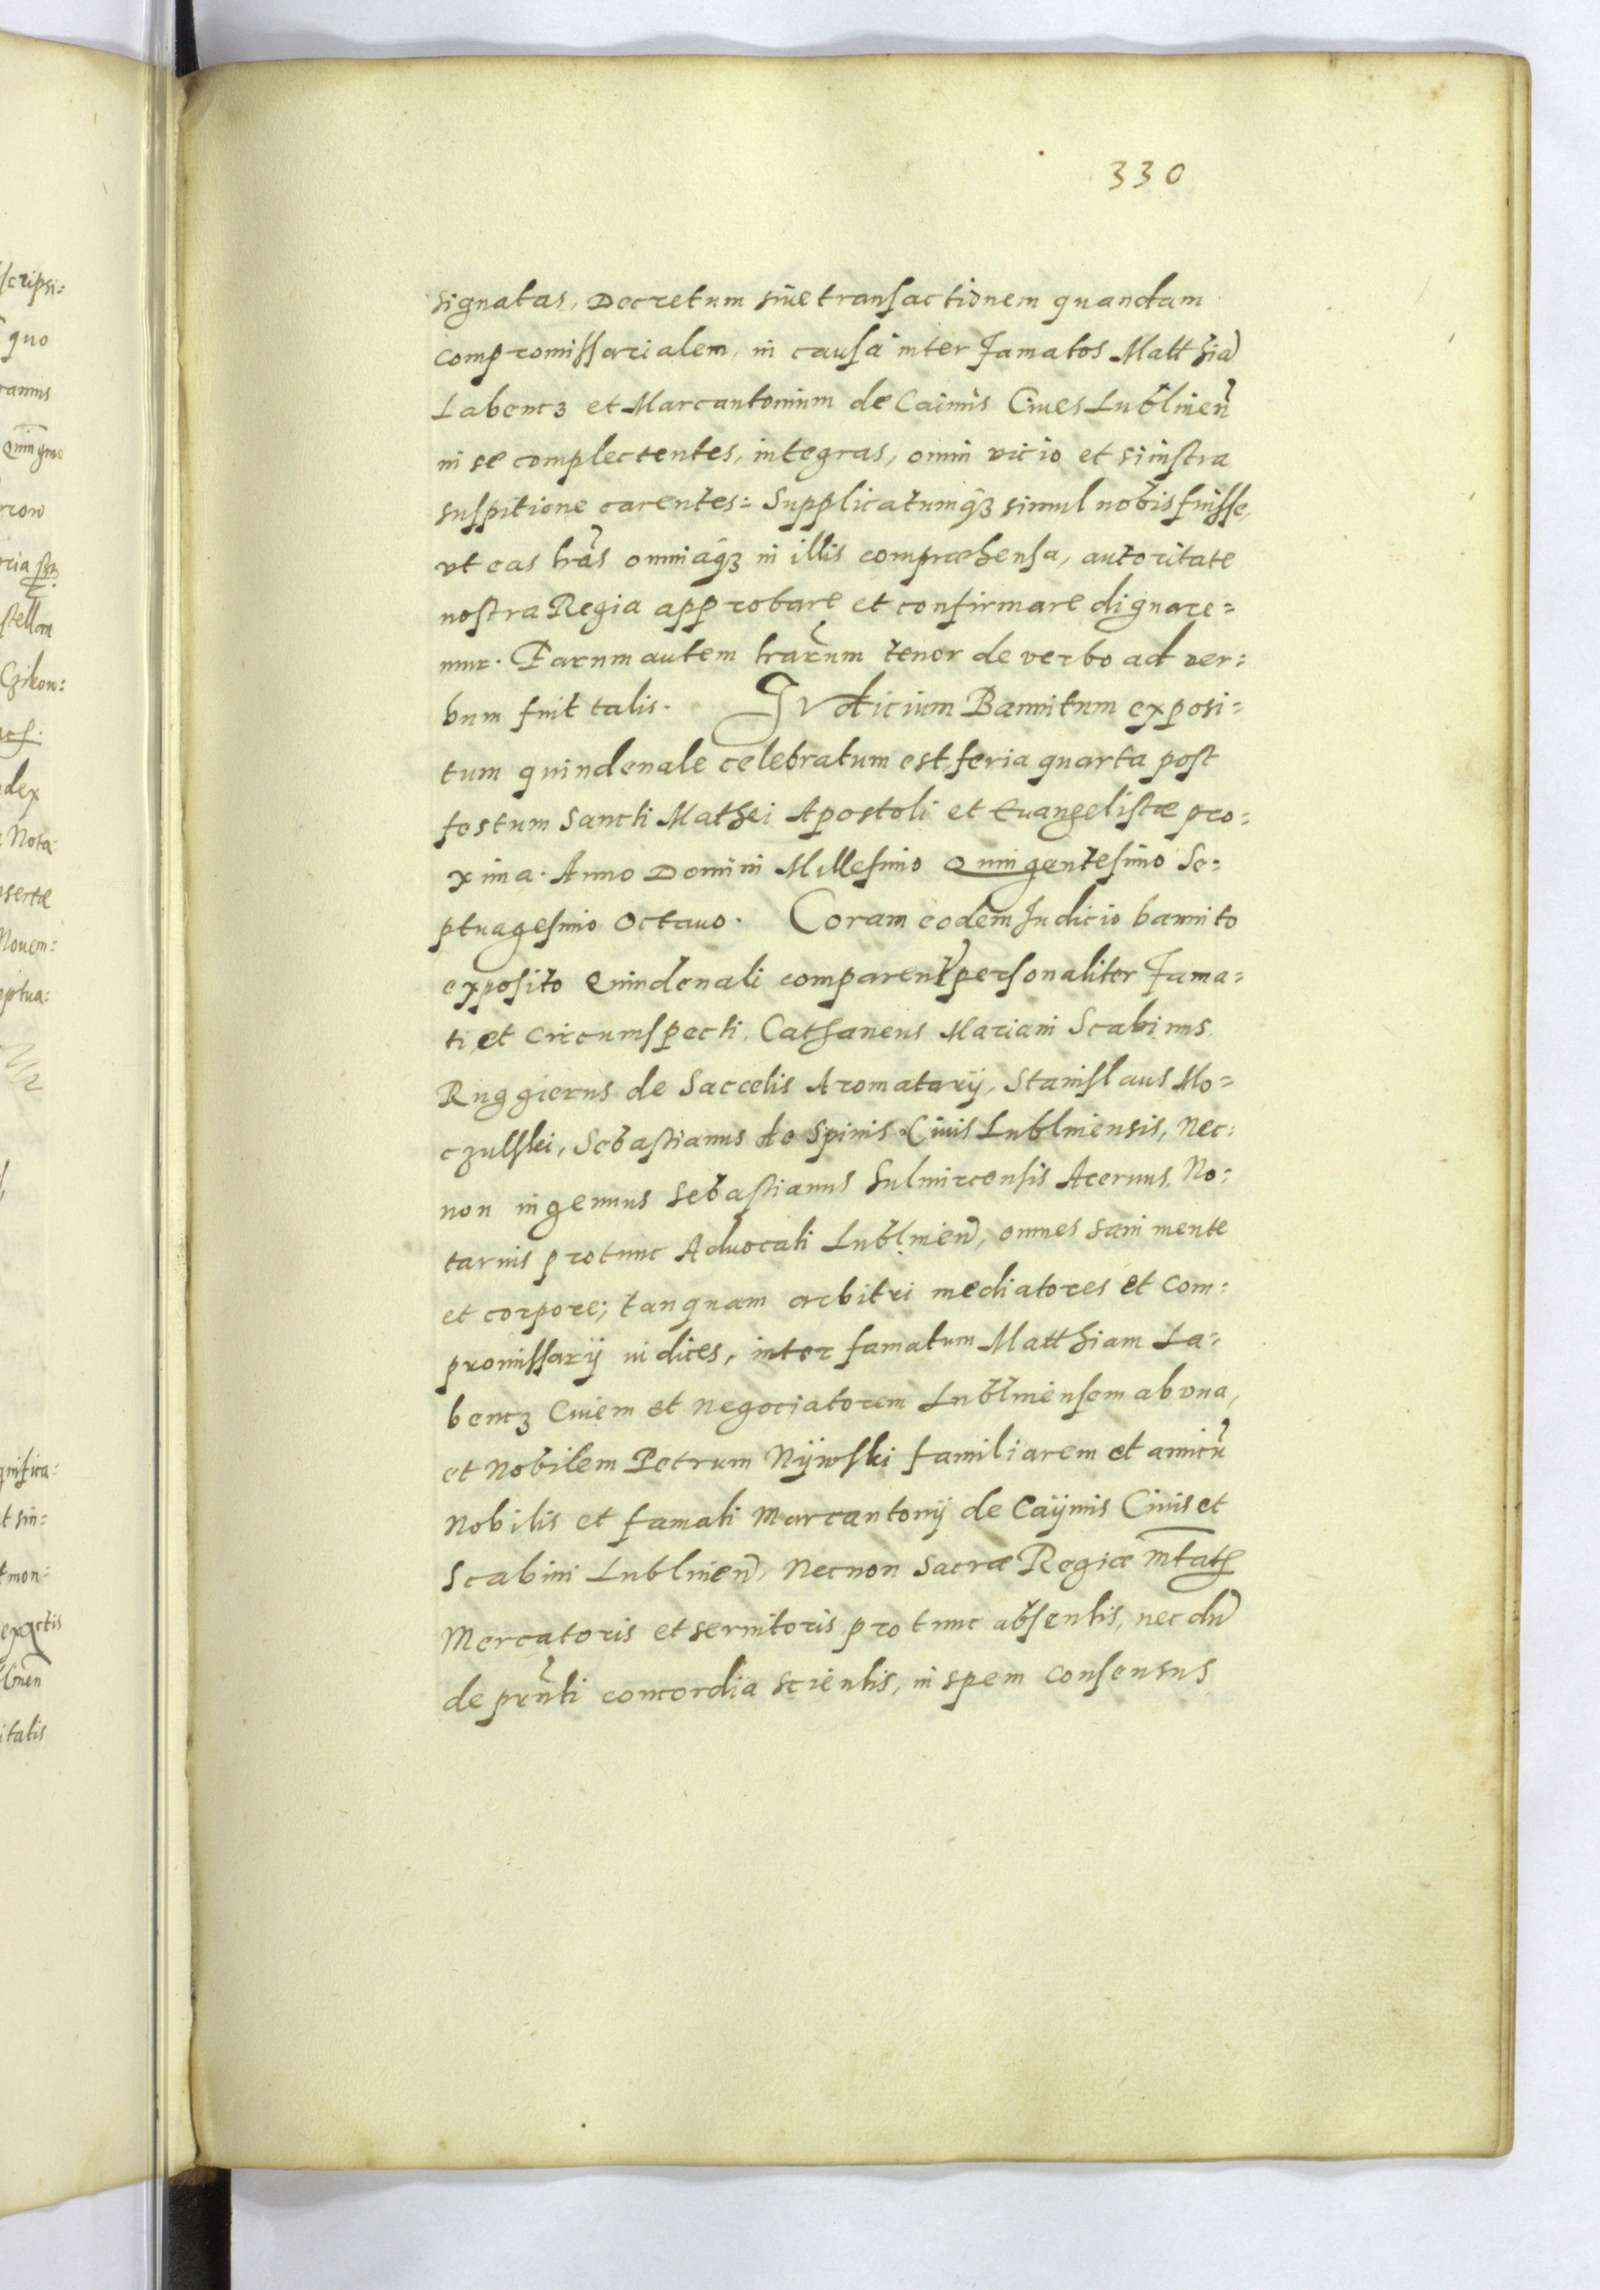 330
signatas, Decretum siue transactionem quandam
compromissarialem, in causa inter Famatos Matthiā
Labencz et Marcantonium de Caimis Ciues Lublineñ
in se complectentes, integras, omni vicio et sinistra
suspitione carentes: Supplicatumq3 simul nobis fuisse,
vt eas lr̃as omniaq3 in illis compraehensa, autoritate
nostra Regia approbare et confirmare dignare=
mur. Earum autem lrar̃um tenor de verbo ad ver=
bum fuit talis. Iudicium Bannitum exposi=
tum quindenale celebratum est, feria quarta post
festum Sancti Mathei Apostoli et Euangelistæ pro=
xima. Anno Domini Millesimo Quingentesimo Se=
ptuagesimo Octauo. Coram eodem Iudicio bannito
exposito Quindenali comparenť personaliter Fama=
ti et Circumspecti, Cathaneus Mariani Scabinus,
Ruggierus de Saccelis Aromatarij, Stanislaus Mo=
czulski, Sebastianus de Spinis Ciuis Lublinensis, Nec=
non ingenuus Sebastianus Sulmircensis Acernus, No=
tarius protunc Aduocati Lublineñ, omnes sani mente
et corpore; tanquam arbitri mediatores et Com=
promissarij iudices, inter famatum Matthiam La=
bencz Ciuem et Negociatorem Lublinensem ab vna,
et Nobilem Petrum Nijwski familiarem et amicū
Nobilis et famati Marcantonij de Caijmis Ciuis et
Scabini Lublineñ, Necnon Sacræ Regiæ Mtatis
Mercatoris et seruitoris protunc absentis, nec dū
de prñti concordia scientis, in spem consensus
scripsi=
quo
stellan
dex
Nota=
insertæ
Nouem=
eptua=
t sin=
exactis
itatis